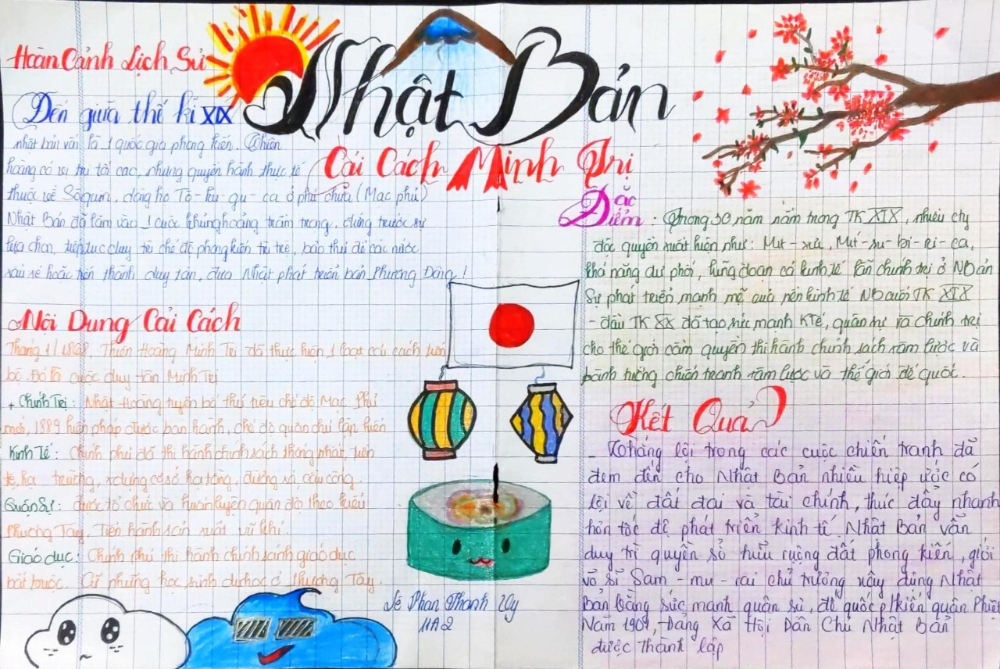 Nhật Bản
Cải Cách Minh Trị
Hoàn Cảnh Lịch Sử
Đến giữa thế kỉ XIX
nhật bản vẫn là 1 quốc gia phong kiến. Thiên
hoàng có vị trí tối cao, nhưng quyền hành thực tế
thuộc về Sôgun, dòng họ Tô-ku-ga-oa ở phủ chúa (Mạc phủ)
Nhật Bản đã lâm vào 1 cuộc khủng hoảng trầm trọng, đứng trước sự
lựa chọn, tiếp tục duy trì chế độ phong kiến trì trệ, bảo thủ để các nước
xâu xé hoặc tiến hành duy tân, đưa Nhật phát triển bản Phương Đông!
Nội Dung Cải Cách
Tháng 1/1868, Thiên Hoàng Minh Trị đã thực hiện 1 loạt cải cách tiến
bộ. Đó là cuộc duy tân Minh Trị
+ Chính Trị: Nhật Hoàng tuyên bố thủ tiêu chế độ Mạc Phủ
mới, 1889 hiến pháp được ban hành, chế độ quân chủ lập hiến
Kinh Tế: Chính phủ đã thi hành chính sách thống nhất tiền
tệ, thị trường, xây dựng cơ sở hạ tầng, đường xá cầu cống.
Quân Sự: được tổ chức và huấn luyện quân đội theo kiểu
Phương Tây. Tiến hành sản xuất vũ khí
Giáo dục: Chính phủ thi hành chính sách giáo dục
bắt buộc. Cử những học sinh du học ở Phương Tây.
Đặc
Điểm: - Trong 30 năm nằm trong TK XIX, nhiều cty
độc quyền xuất hiện như: Mit-xưi, Mit-su-bi-si-ca,
khả năng chi phối, lũng đoạn cả kinh tế lẫn chính trị ở N Bản
Sự phát triển mạnh mẽ của nền kinh tế NB cuối TK XIX
- đầu TK XX đã tạo sức mạnh KTế, quân sự và chính trị
cho thế giới cầm quyền thi hành chính sách xâm lược và
bành trướng chiến tranh xâm lược và thế giới đế quốc.
Kết Quả
- Thắng lợi trong các cuộc chiến tranh đã
đem đến cho Nhật Bản nhiều hiệp ước có
lợi về đất đai và tài chính, thúc đẩy nhanh
hơn tốc độ phát triển kinh tế. Nhật Bản vẫn
duy trì quyền sở hữu ruộng đất phong kiến, giới
võ sĩ Sam-mu-rai chủ trương xây dựng Nhật
Bản bằng sức mạnh quân sự, đế quốc Phiến quân Phiệt
Năm 1901, Đảng Xã Hội Dân Chủ Nhật Bản
được thành lập
Lê Phan Thanh
11A2